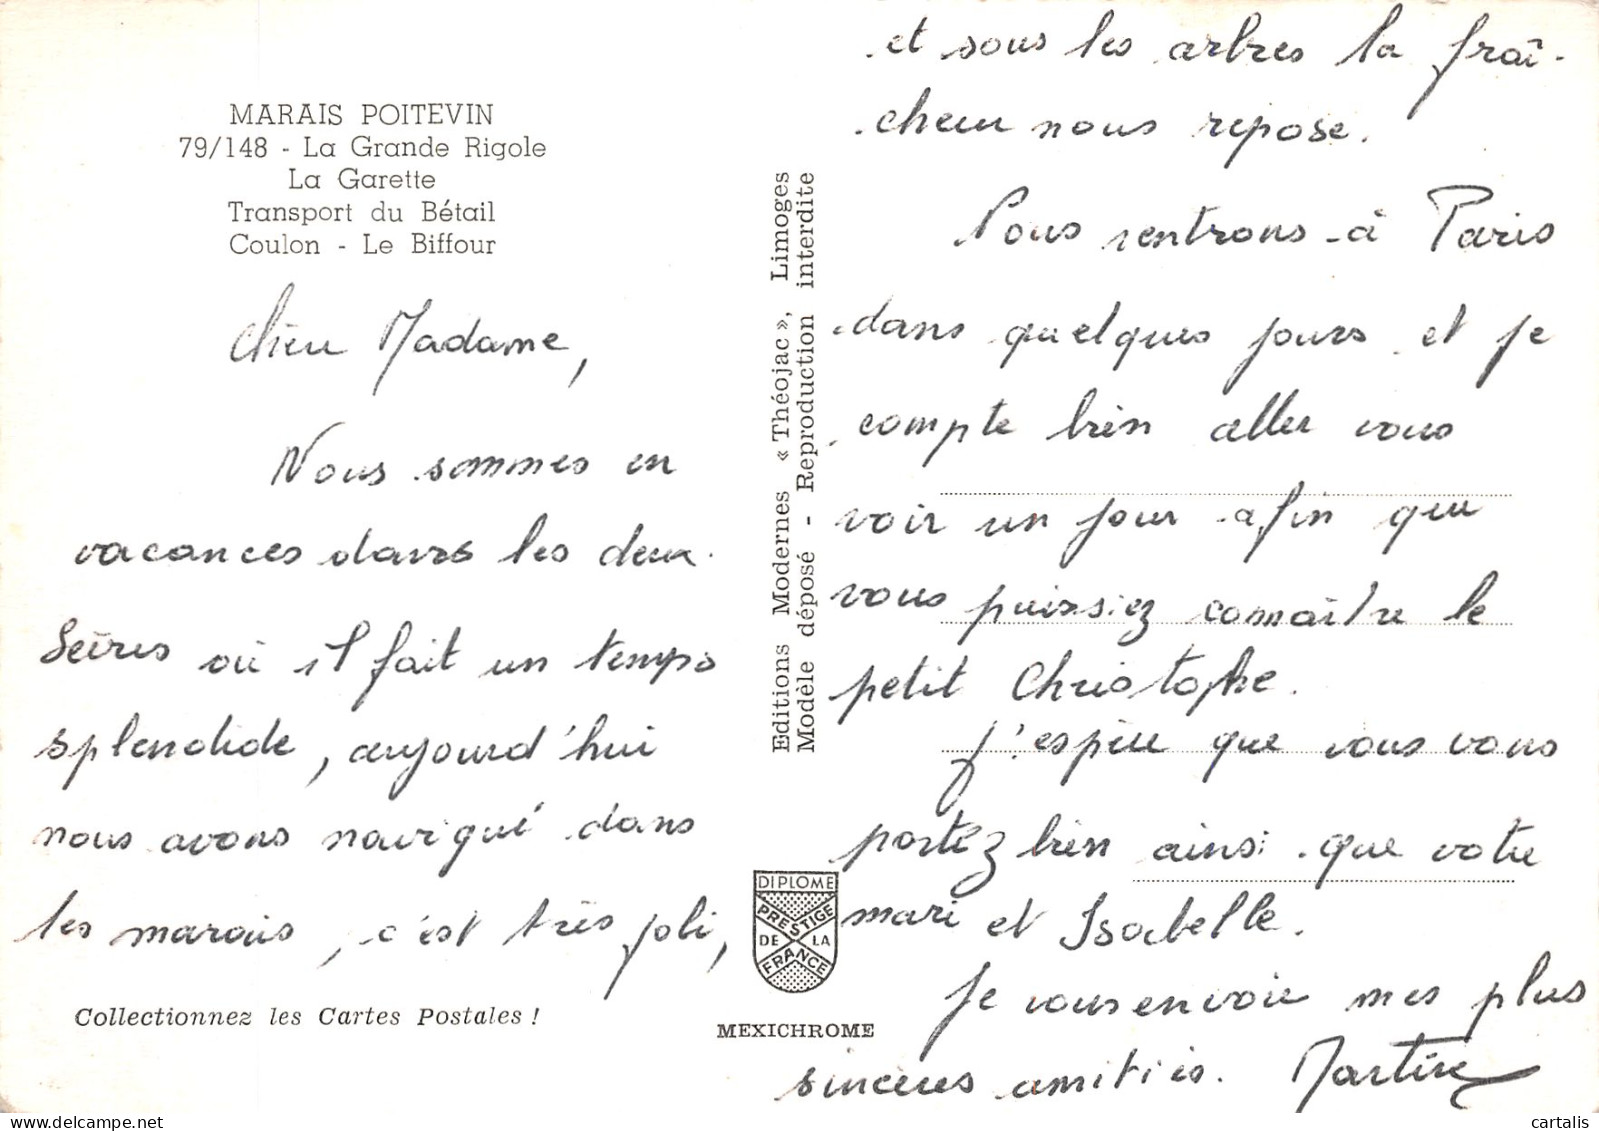 MARAIS POITEVIN
79/148 - La Grande Rigole
La Garette
Transport du Bétail
Coulon - Le Biffour
Chère Madame,
Nous sommes en
vacances dans les deux
Sèvres où il fait un temps
splendide, aujourd'hui
nous avons navigué dans
les marais, c'est très joli,
Collectionnez les Cartes Postales !
Editions Modernes « Théojac », Limoges
Modèle déposé - Reproduction interdite
DIPLOME
PRESTIGE
DE LA
FRANCE
MEXICHROME
et sous les arbres la fraî-
cheur nous repose.
Nous rentrons à Paris
dans quelques jours et je
compte bien aller vous
voir un jour afin que
vous puissiez connaître le
petit Christophe.
J'espère que vous vous
portez bien ainsi que votre
mari et Isabelle.
Je vous envoie mes plus
sincères amitiés. Martine
cartalis